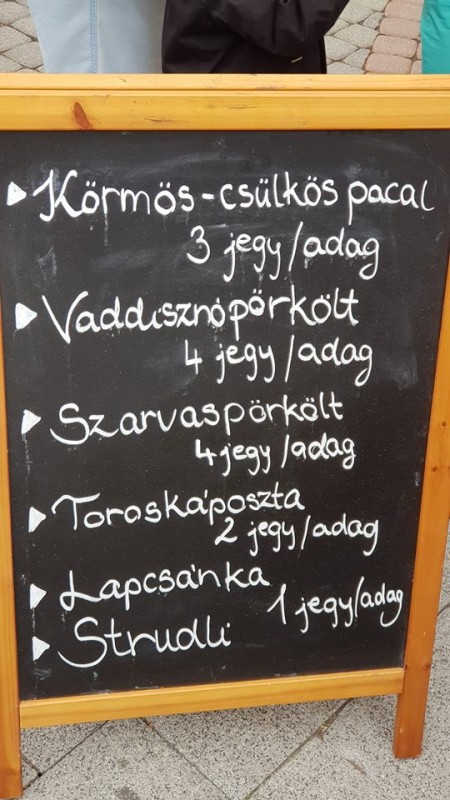 Körmös-csülkös pacal
3 jegy/adag
Vaddisznópörkölt
4 jegy/adag
Szarvaspörkölt
4 jegy/adag
Toroskáposzta
2 jegy/adag
Lapcsánka
1 jegy/adag
Strudli